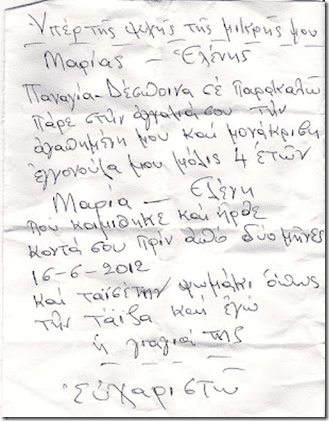 Υπέρ της ψυχής της μικρής μου
Μαρίας – Ελένης
Παναγία-Δέσποινα σέ παρακαλώ
πάρε στην αγκαλιά σου την
αγαθημένη μου και μονάκριβη
εγγονούλα μου μόλις 4 ετών
Μαρία – Ελένη
που κοιμήθηκε και ήρθε
κοντά σου πρίν από δύο μήνες
16-6-2012
και ταϊσέ την ψωμάκι όπως
την τάϊζα και εγώ
η γιαγιά της
Ευχαριστώ